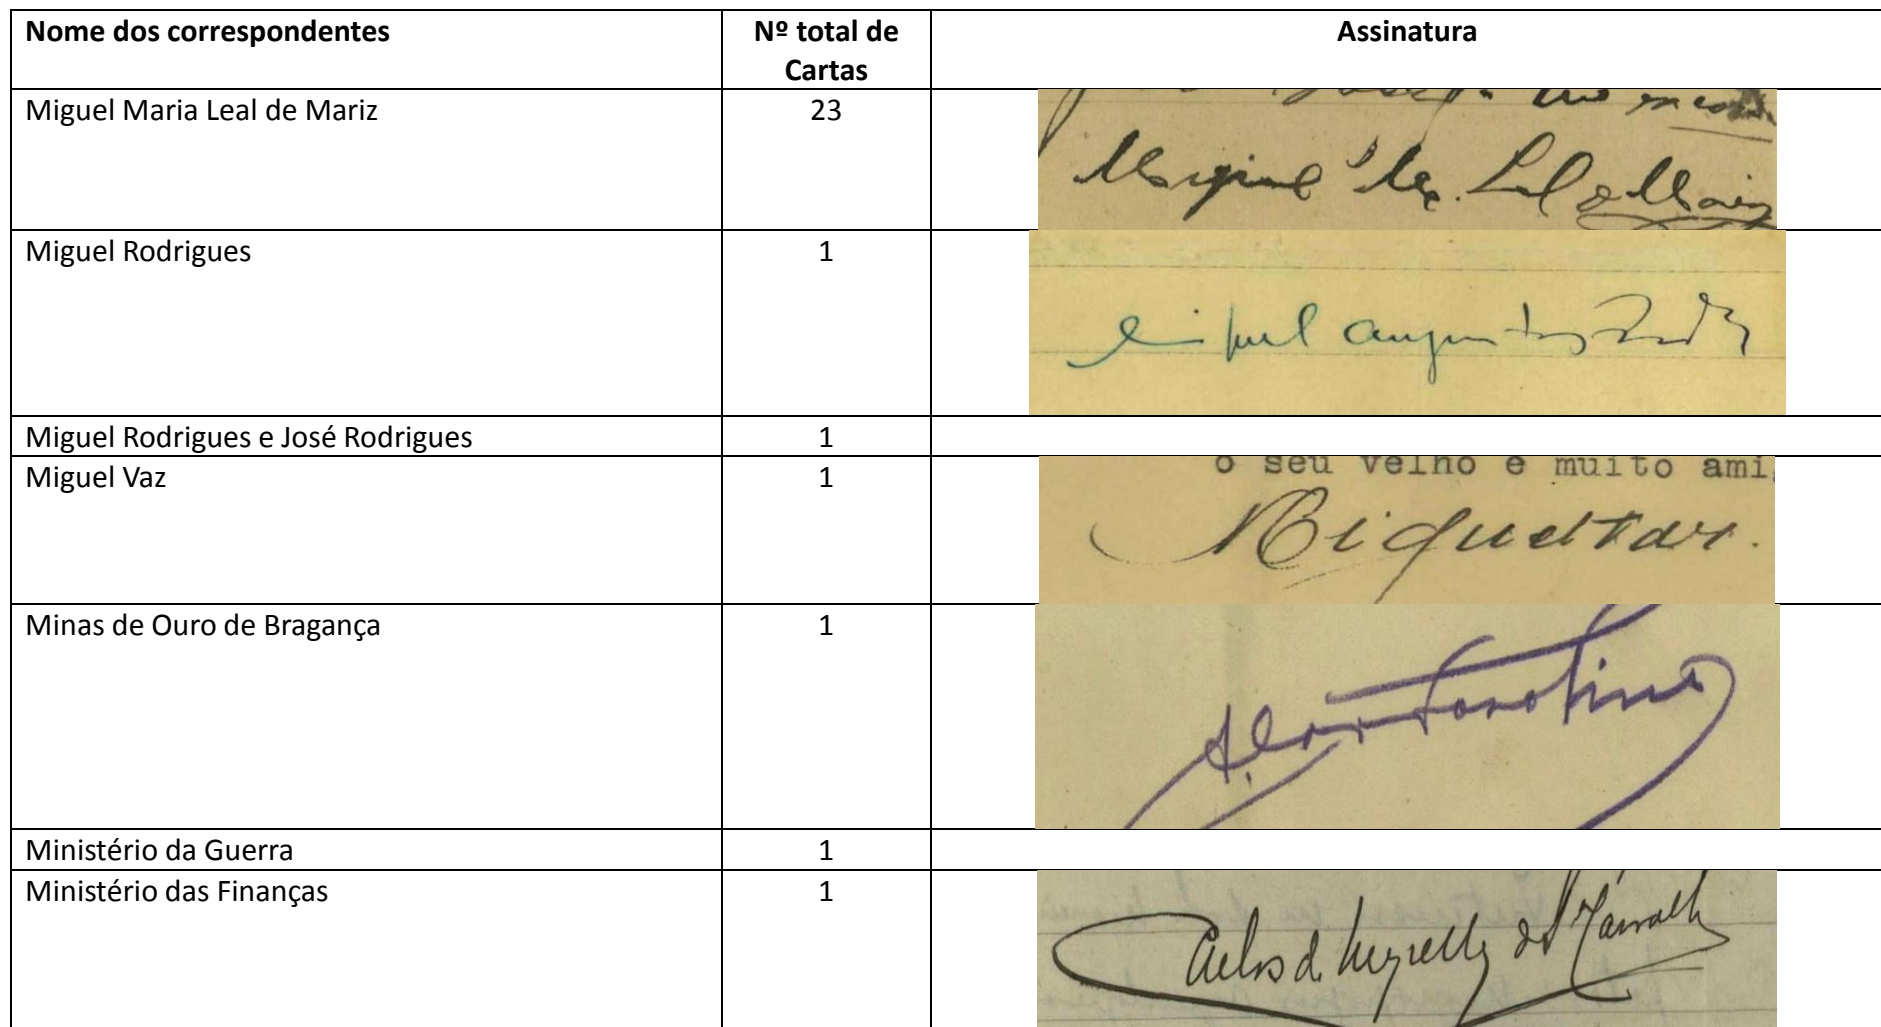 Nome dos correspondentes
Nº total de
Cartas
Assinatura
Miguel Maria Leal de Mariz
23
Miguel Mª. Leal de Mariz
Miguel Rodrigues
1
Miguel Augusto
Miguel Rodrigues e José Rodrigues
1
Miguel Vaz
1
o seu velho e muito ami
Miguel Vaz.
Minas de Ouro de Bragança
1
Ministério da Guerra
1
Ministério das Finanças
1
Carlos de